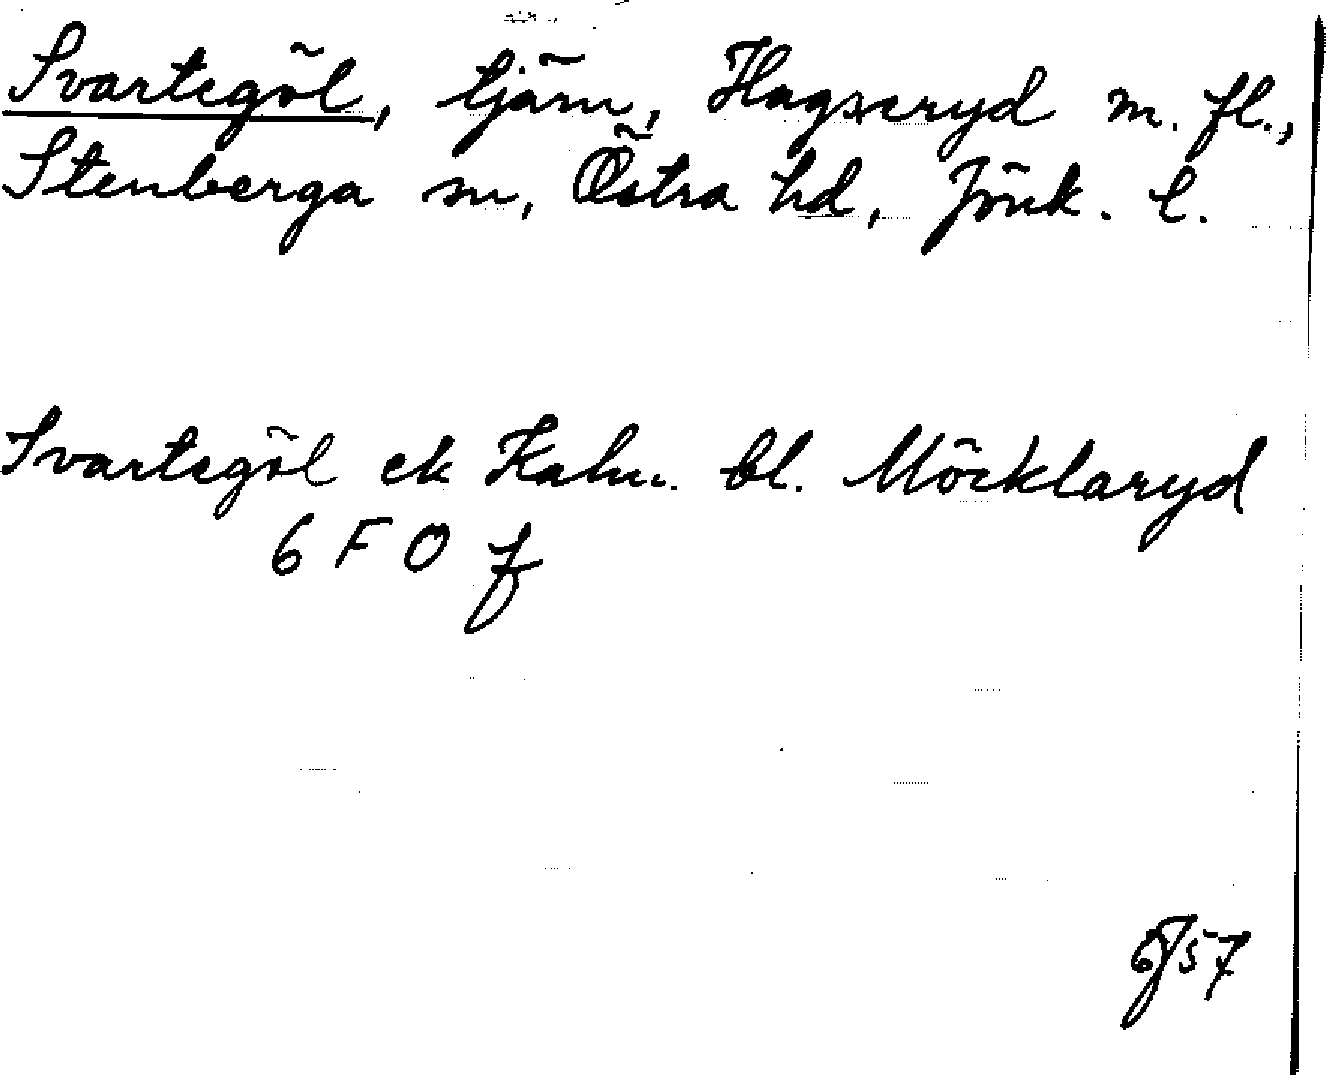 Svartegöl, tjärn, Hagseryd m. fl.,
Stenberga sn, Östra hd, Jönk. l.
Svartegöl ek Kalm. bl. Möcklaryd
6 F O f
57